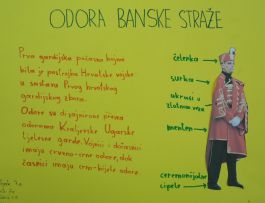 ODORA BANSKE STRAŽE
Prva gardijska počasna bojna
bila je postrojba Hrvatske vojske
u sastavu Prvog hrvatskog
gardijskog zbora.
Odore su dizajnirane prema
odorama Kraljevske Ugarske
tjelesne garde. Vojnici i dočasnici
imaju crveno-crne odore, dok
časnici imaju crno-bijele odore.
čelenka
surka
ukrasi u
zlatnom vezu
menten
ceremonijalne
cipele